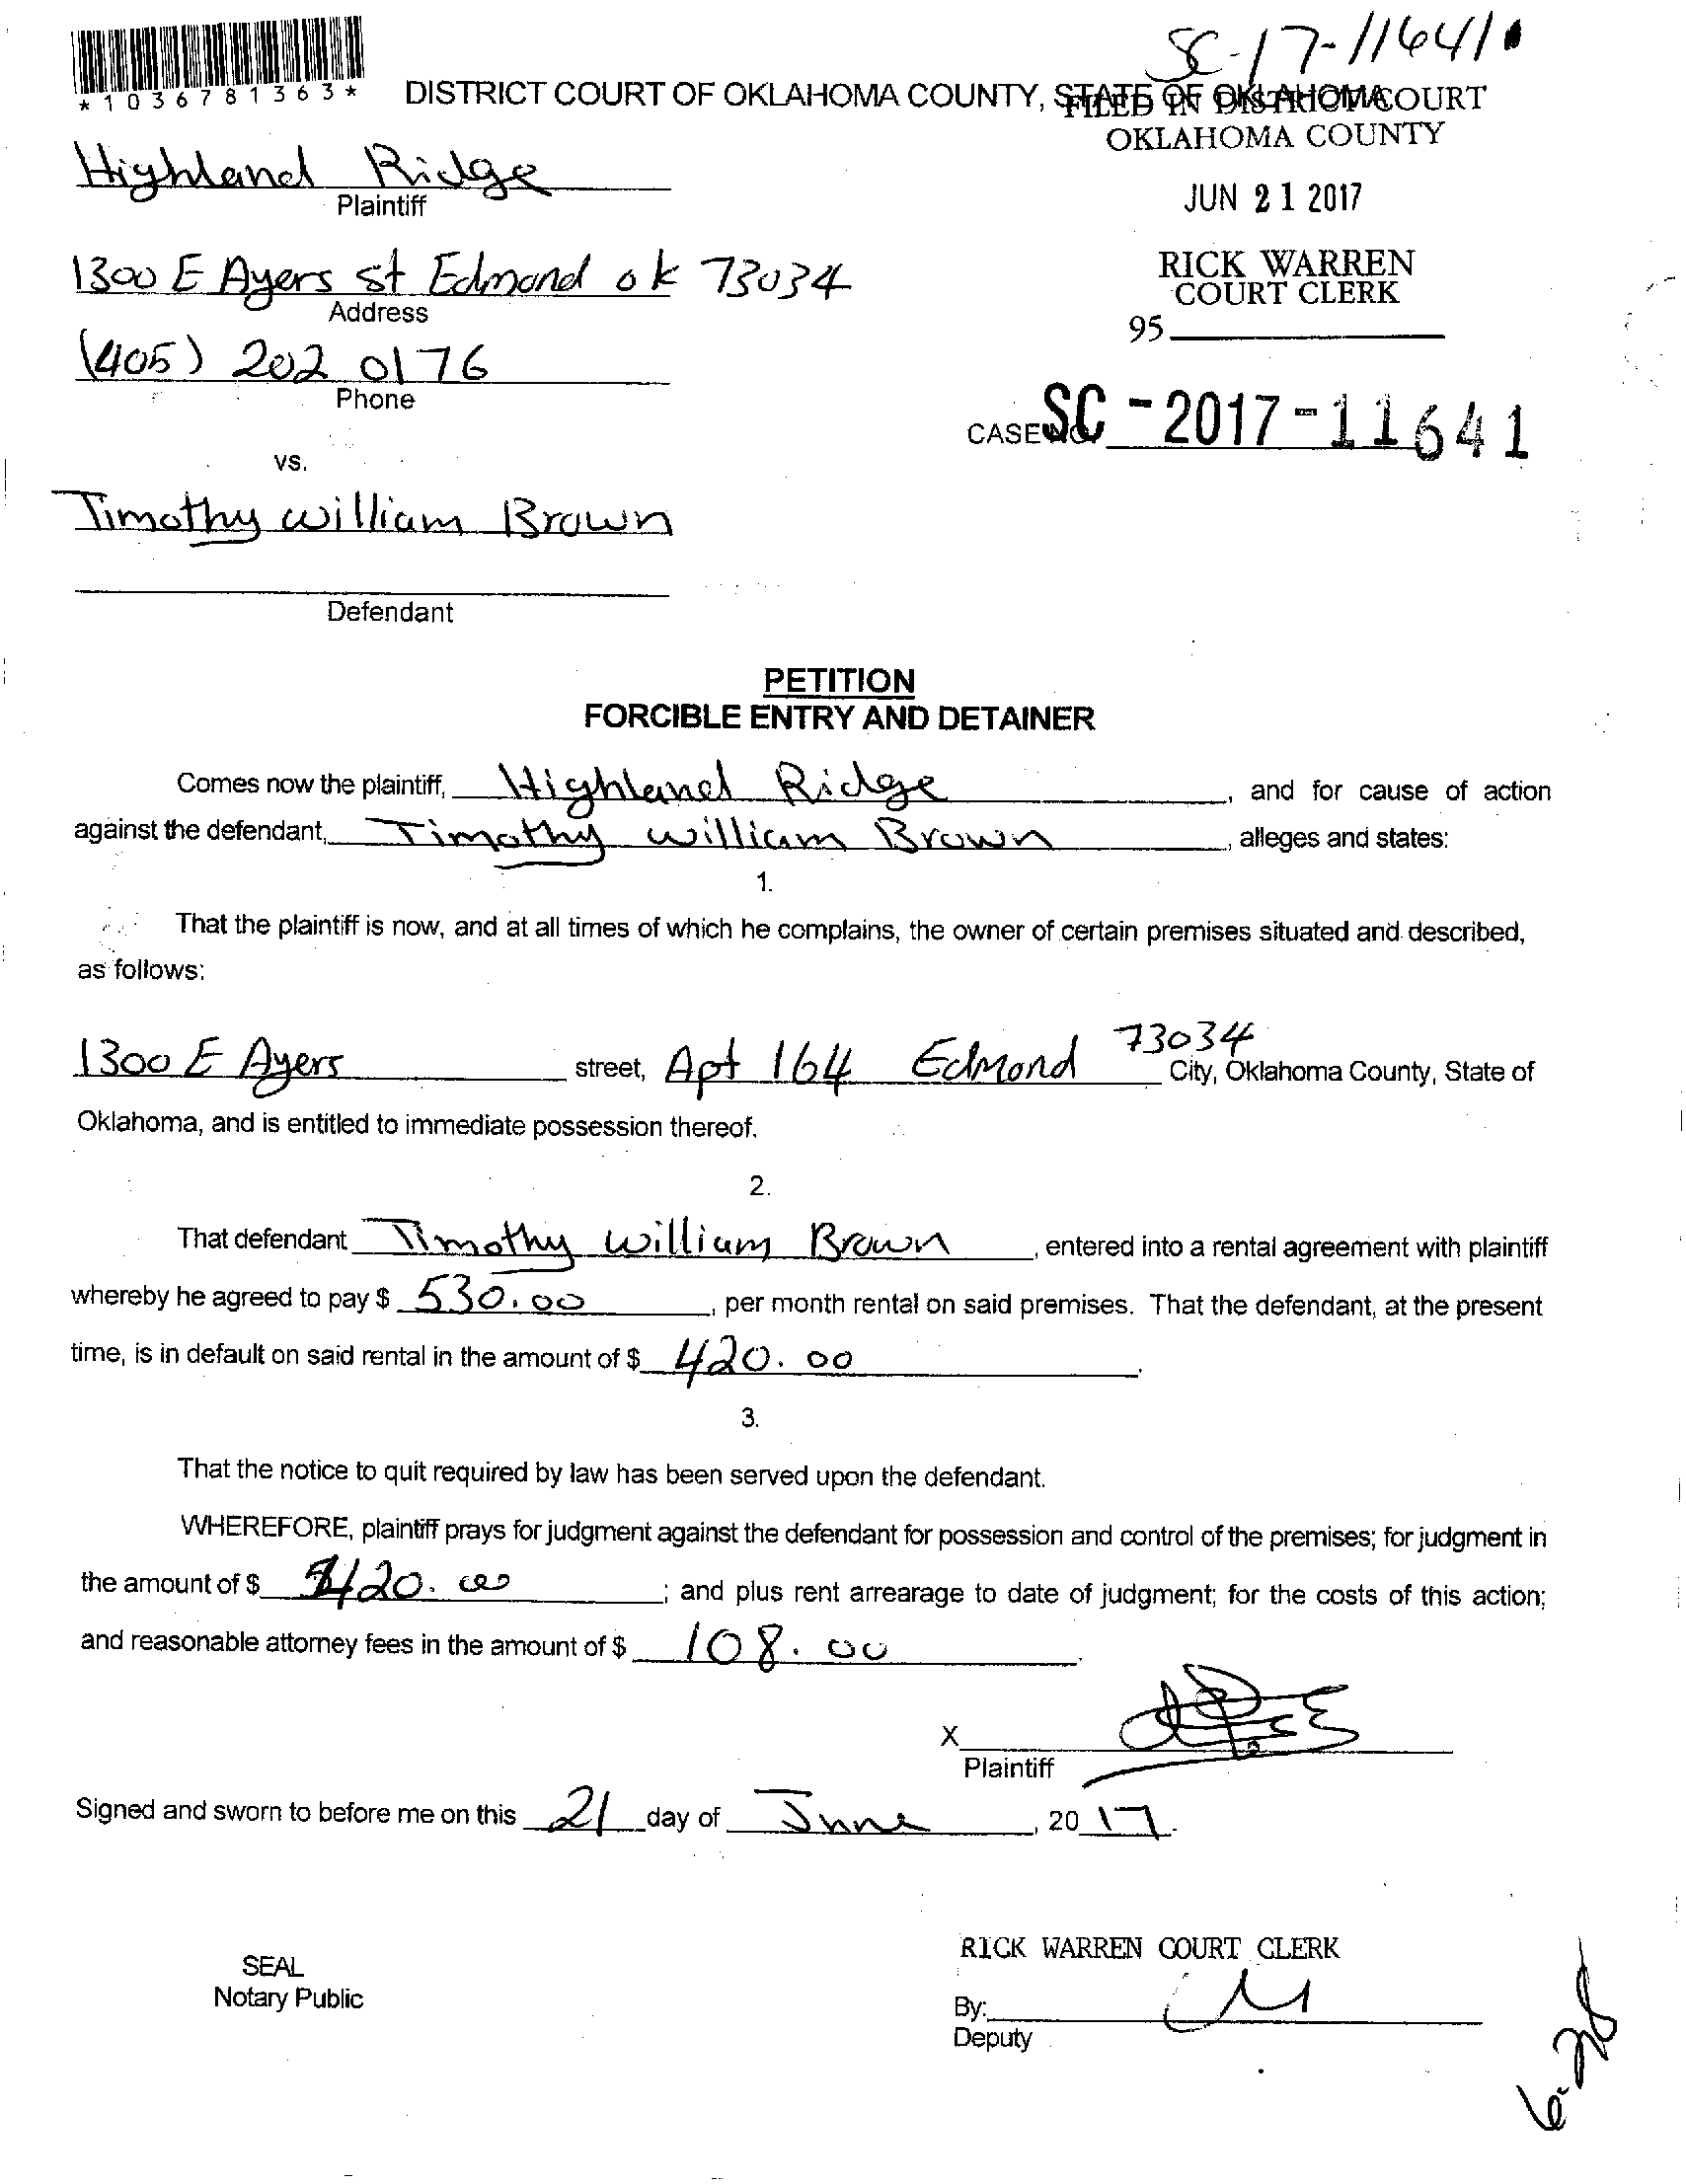 SC-17-11641
*1036781363*
DISTRICT COURT OF OKLAHOMA COUNTY, STATE OF OKLAHOMA
FILED IN DISTRICT COURT
OKLAHOMA COUNTY
Highland Ridge
Plaintiff
JUN 21 2017
1300 E Ayers st Edmond ok 73034
Address
RICK WARREN
COURT CLERK
95
(405) 202 0176
Phone
CASE NO. SC-2017-11641
vs.
Timothy william Brown
Defendant
PETITION
FORCIBLE ENTRY AND DETAINER
Comes now the plaintiff, Highland Ridge, and for cause of action
against the defendant, Timothy william Brown, alleges and states:
1.
That the plaintiff is now, and at all times of which he complains, the owner of certain premises situated and described,
as follows:
1300 E Ayers street, Apt 164 Edmond 73034 City, Oklahoma County, State of
Oklahoma, and is entitled to immediate possession thereof.
2.
That defendant Timothy william Brown, entered into a rental agreement with plaintiff
whereby he agreed to pay $ 530.00, per month rental on said premises. That the defendant, at the present
time, is in default on said rental in the amount of $ 420.00.
3.
That the notice to quit required by law has been served upon the defendant.
WHEREFORE, plaintiff prays for judgment against the defendant for possession and control of the premises; for judgment in
the amount of $ 420.00; and plus rent arrearage to date of judgment; for the costs of this action;
and reasonable attorney fees in the amount of $ 108.00.
X
Plaintiff
Signed and sworn to before me on this 21 day of June, 20 17.
SEAL
Notary Public
RICK WARREN COURT CLERK
By:
Deputy
6-28